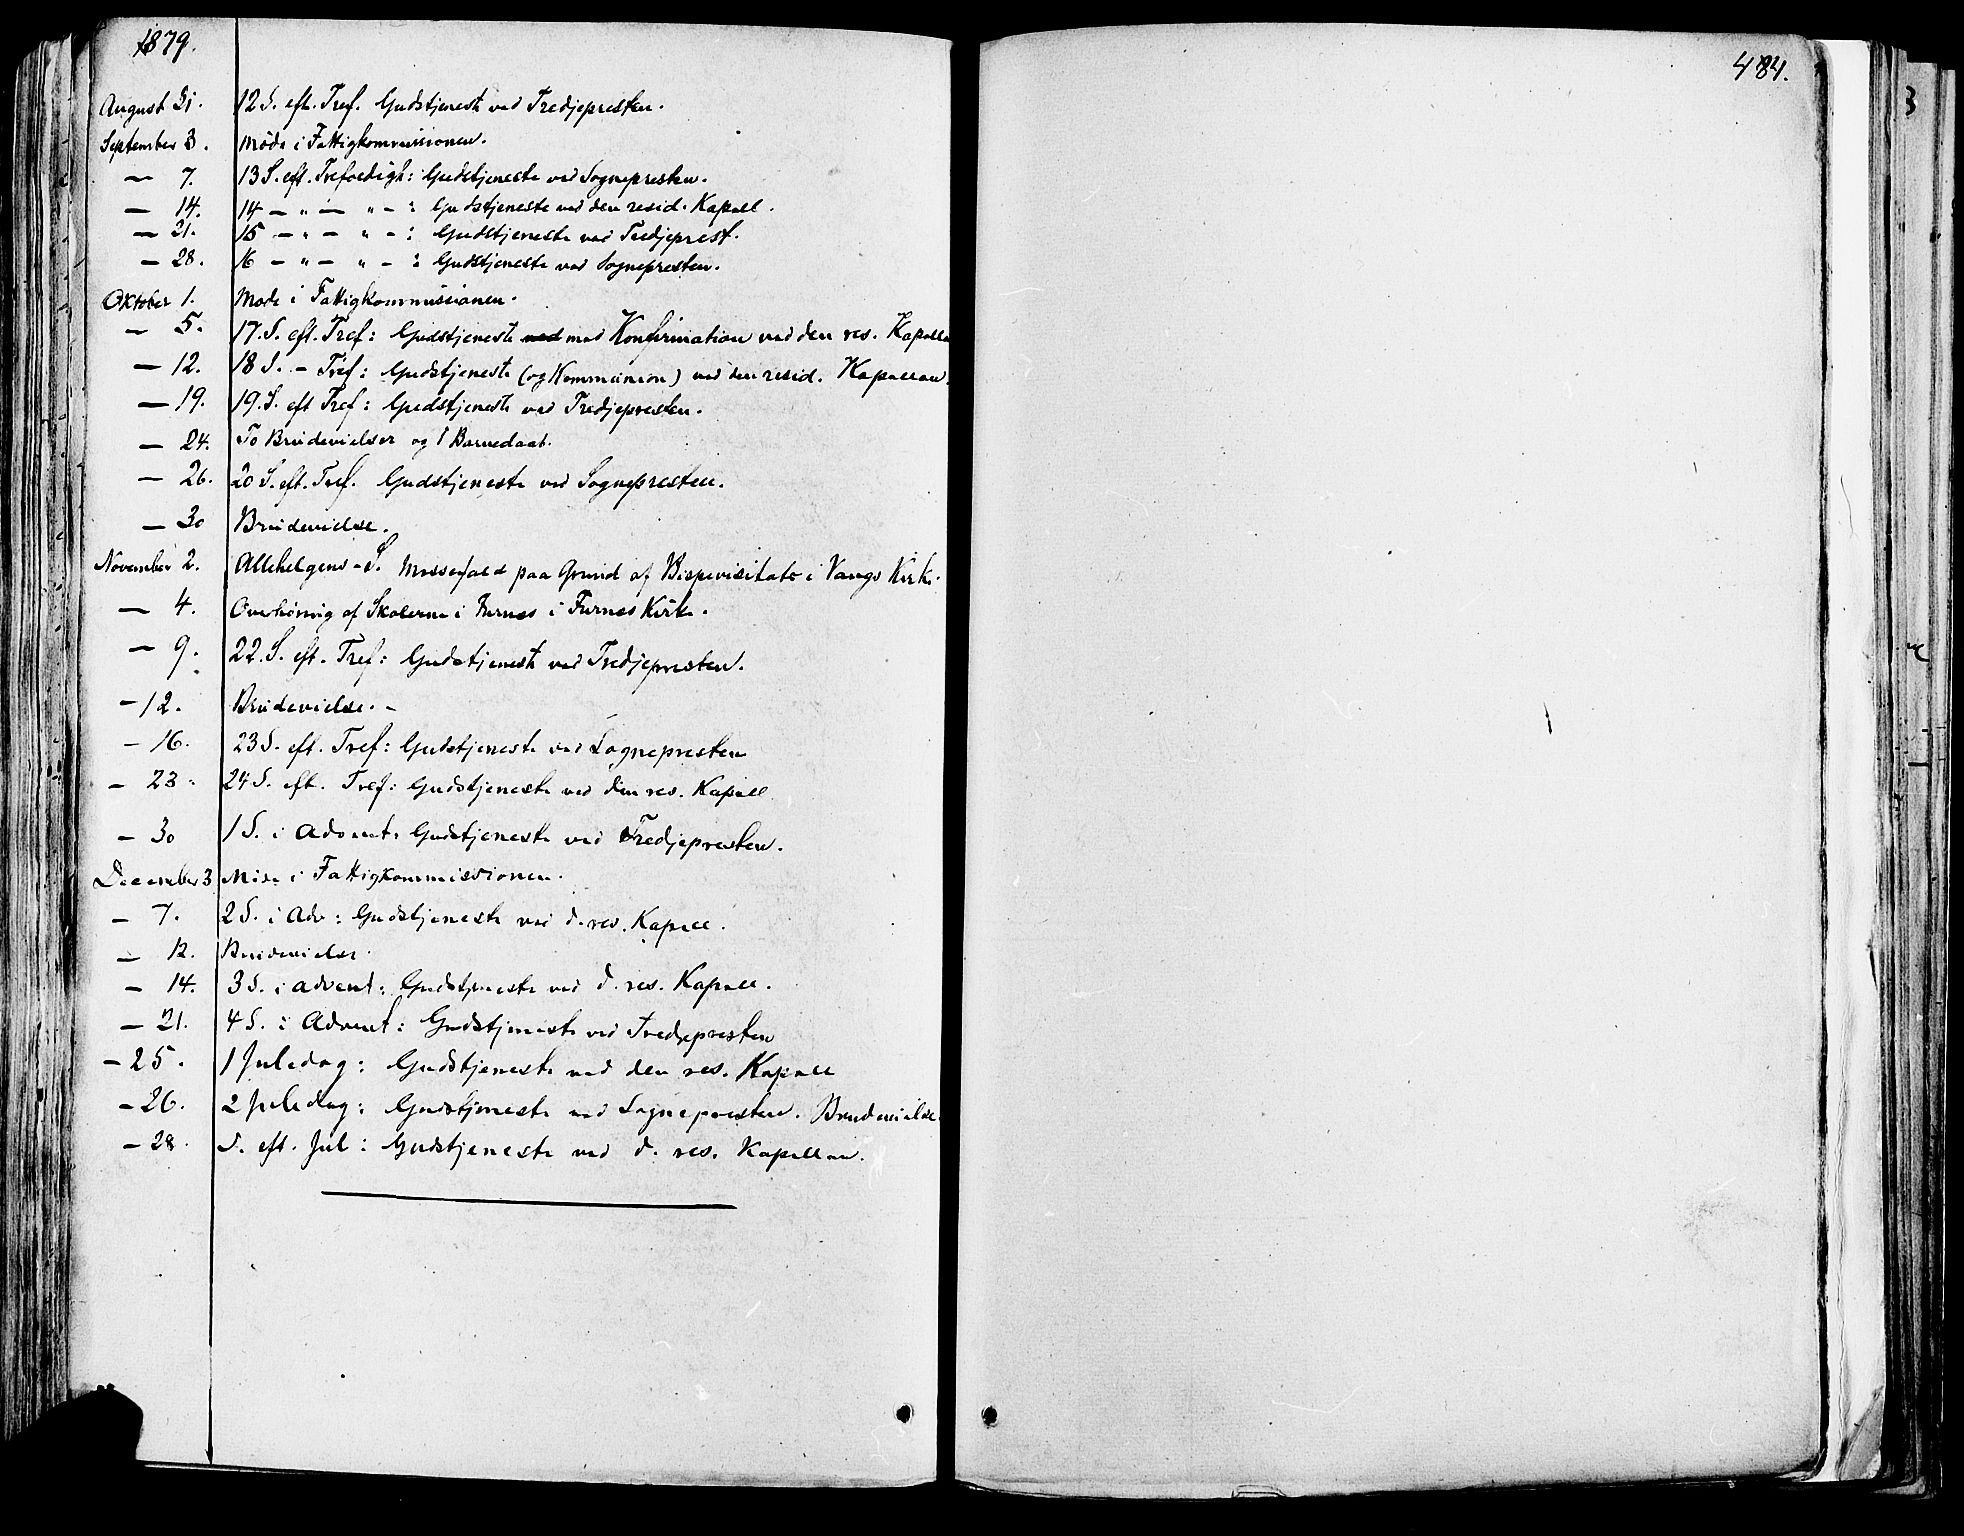 1879.
August 31. 12 S. eft. Tref. Gudstjeneste ved Tredjepresten.
September 3. Møde i Fattigkommissionen.
— 7. 13 S. eft. Trefoldigh: Gudstjeneste ved Sognepresten.
— 14. 14 — " — " — : Gudstjeneste ved den resid. Kapell.
— 21. 15 — " — " — : Gudstjeneste ved Tredjeprest.
— 28. 16 — " — " — : Gudstjeneste ved Sognepresten.
Oktober 1. Møde i Fattigkommissionen.
— 5. 17. S. eft. Tref: Gudstjeneste med Konfirmation ved den res. Kapellan
— 12. 18 S. — Tref: Gudstjeneste (og Kommunion) ved den resid. Kapellan.
— 19. 19. S. eft Tref: Gudstjeneste ved Tredjepresten.
— 24. To Brudevielser og 1 Barnedaab.
— 26. 20 S. eft. Tref. Gudstjeneste ved Sognepresten.
— 30 Brudevielse.
November 2. Allehelgens-S. Messefald paa Grund af Bispevisitats i Vangs Kirke.
— 4. Overhøring af Skolerne i Furnes i Furnes Kirke.
— 9. 22. S. eft. Tref: Gudstjeneste ved Tredjepresten.
— 12. Brudevielse. –
— 16. 23 S. eft. Tref: Gudstjeneste ved Sognepresten
— 23. 24 S. eft. Tref: Gudstjeneste ved den res. Kapell
— 30 1 S. i Advent: Gudstjeneste ved Tredjepresten.
December 3 Møde i Fattigkommissionen.
— 7. 2 S. i Adv: Gudstjeneste ved d. res. Kapell.
— 12. Brudevielse.
— 14. 3 S. i Advent: Gudstjeneste ved d. res. Kapell.
— 21. 4 S. i Advent: Gudstjeneste ved Tredjepresten
— 25. 1 Juledag: Gudstjeneste ved den res. Kapell
— 26. 2 Juledag: Gudstjeneste ved Sognepresten. Brudevielse.
— 28. S. eft. Jul: Gudstjeneste ved d. res. Kapellan.
484.